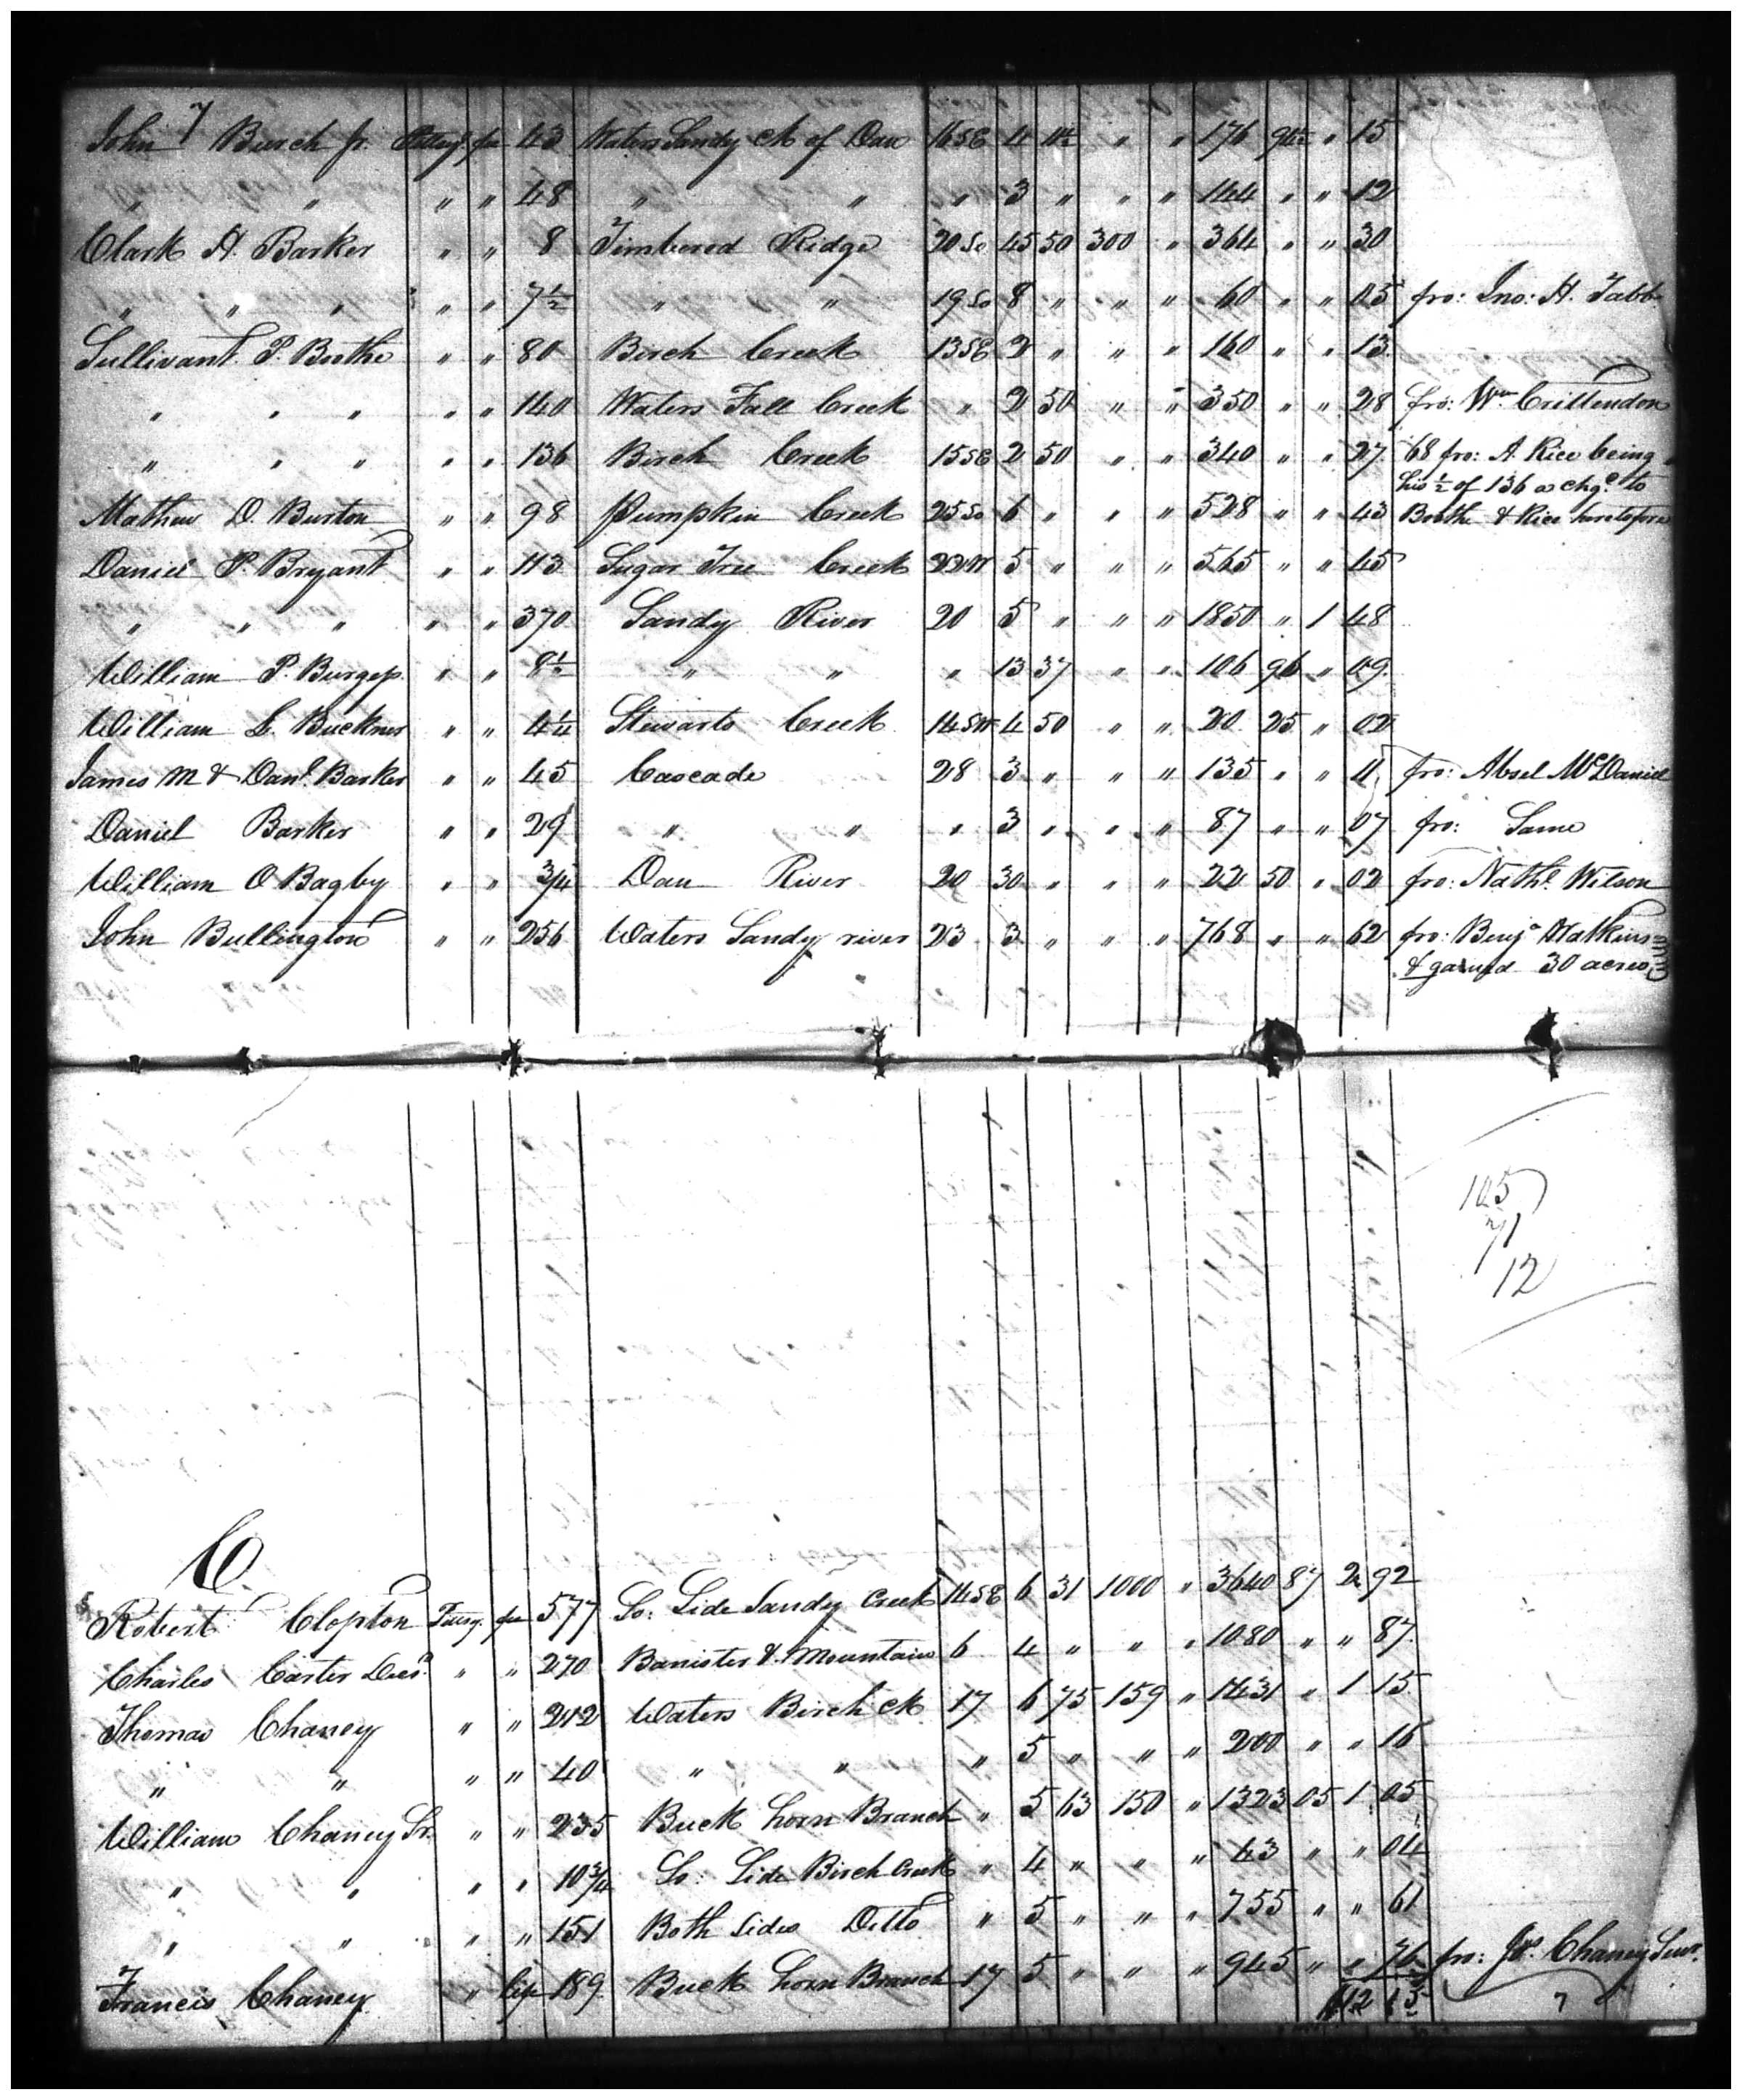 John T Burch Jr. Pittsy. fee 43 Waters Sandy Ck of Dan 16 SE 4 11½ " " 176 94½ " 15
" " " " 48 " " " 3 " " " 144 " " 12
Clark H. Barker " " 8 Timbered Ridge 20 So 45 50 300 " 364 " " 30
" " " " " 7½ " " 19 So 8 " " " 60 " " 05 fro: Jno: H. Tabb
Sullivant P. Boothe " " 80 Birch Creek 13 SE 2 " " " 160 " " 13
" " " " " 140 Waters Fall Creek " 2 50 " " 350 " " 28 fro: Wm Crittendon
" " " " " 136 Birch Creek 15 SE 2 50 " " 340 " " 27 68 fro: A. Rice being
his ½ of 136 a chgd to
Mathew D. Burton " " 98 Pumpkin Creek 25 So 6 " " " 528 " " 43 Boothe & Rice heretofore
Daniel P. Bryant " " 113 Sugar Tree Creek 22 W 5 " " " 565 " " 45
" " " " " 370 Sandy River 20 5 " " " 1850 " 1 48
William P. Burgess " " 8½ " " " 13 37 " " 106 96 " 09
William L. Buckner " " 4¼ Stewarts Creek 14 SW 4 50 " " 20 25 " 02
James M & Danl. Barker " " 45 Cascade 28 3 " " " 135 " " 11 fro: Absel McDaniel
Daniel Barker " " 29 " " " 3 " " " 87 " " 07 fro: Same
William O Bagby " " 3/4 Dan River 20 30 " " " 22 50 " 02 fro: Nathl. Wilson
John Bullington " " 256 Waters Sandy river 23 3 " " " 768 " " 62 fro: Benja Watkins
& gained 30 acres
105
71
12
C
Robert Clopton Pittsy. fee 577 So: Side Sandy Creek 14 SE 6 31 1000 " 3640 87 2 92
Charles Carter Decd. " " 270 Banister & Mountain 6 4 " " " 1080 " " 87
Thomas Chaney " " 212 Waters Birch Ck 17 6 75 159 " 1431 " 1 15
" " " " 40 " " " 5 " " " 200 " " 16
William Chaney Sr. " " 235 Buck horn Branch " 5 63 150 " 1323 05 1 05
" " " " 10 3/4 So: Side Birch Creek " 4 " " " 43 " " 04
" " " " 151 Both Sides Ditto " 5 " " " 755 " " 61
Francis Chaney " 189 Buck horn Branch 17 5 " " " 945 " " 76 fro: Chaney Senr.
7